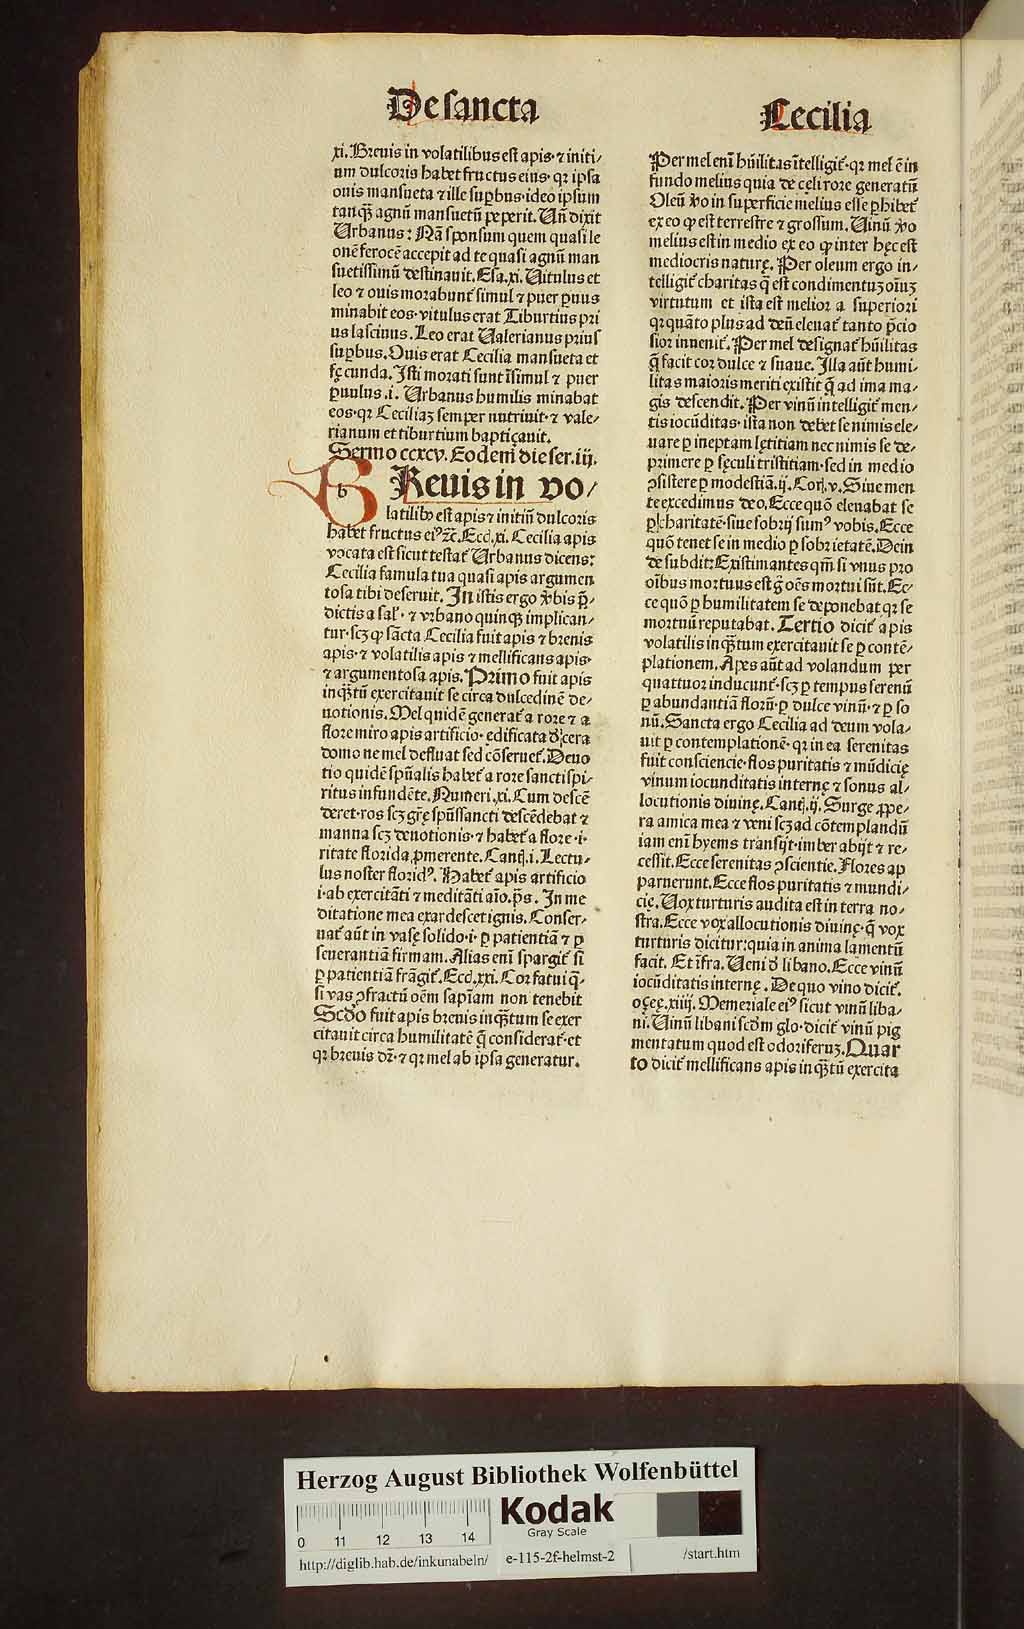 De sancta
Cecilia
xi. Breuis in volatilibus est apis· ⁊ initi⸗
um dulcoris habet fructus eius· qꝛ ipsa
ouis mansueta ⁊ ille suꝑbus· ideo ipsum
tanqꝫ agnū mansuetū peperit. Uñ dixit
Urbanus: Nā sponsum quem quasi le
onē ferocē accepit ad te quasi agnū man
suetissimū destinauit. Esa.xi. Uitulus et
leo ⁊ ouis morabunt᷑ simul ⁊ puer ꝑuus
minabit eos· vitulus erat Tiburtius pri
us lasciuus. Leo erat Ualerianus prius
suꝑbus. Ouis erat Cecilia mansueta et
fęcunda. Isti morati sunt īsimul ⁊ puer
ꝑuulus .i. Urbanus humilis minabat
eos· qꝛ Ceciliaꝫ semper nutriuit· ⁊ vale⸗
rianum et tiburtium baptiçauit.
Sermo ccxcv. Eodem die ser. iij.
b Reuis in vo⸗
latilibꝰ est apis ⁊ initiū dulcoris
habet fructus eiꝰ ⁊c̄. Eccl̓.xi. Cecilia apis
vocata est sicut testat᷑ Urbanus dicens:
Cecilia famula tua quasi apis argumen
tosa tibi deseruit. In istis ergo v̓bis p̄⸗
dictis a sal̓· ⁊ vrbano quinqꝫ implican⸗
tur· scꝫ ꝙ sācta Cecilia fuit apis ⁊ breuis
apis· ⁊ volatilis apis ⁊ mellificans apis·
⁊ argumentosa apis. Primo fuit apis
inqꝫtū exercitauit se circa dulcedinē de⸗
uotionis. Mel quidē generat᷑ a rore ⁊ a
flore miro apis artificio· edificata d̓ cera
domo ne mel defluat sed cōseruet᷑. Deuo
tio quidē spūalis habet᷑ a rore sancti spi⸗
ritus infundēte. Numeri .xi. Cum descē
deret· ros scꝫ grę spūssancti descēdebat ⁊
manna scꝫ deuotionis· ⁊ habet᷑ a flore ·i·
ritate florida ꝓmerente. Canţ.i. Lectu⸗
lus noster floridꝰ. Habet᷑ apis artificio
·i· ab exercitāti ⁊ meditāti aīo. p̄s. In me
ditatione mea exardescet ignis. Conser⸗
uat᷑ aūt in vase solido ·i· ꝑ patientiā ⁊ ꝑ
seuerantiā firmam. Alias eni spargit᷑ si
ꝑ patientiā frāgit᷑. Eccl̓.xxi. Cor fatui q̄⸗
si vas ꝯfractū oēm sapīam non tenebit
Scd̓o fuit apis breuis inqꝫtum se exer
citauit circa humilitatē q̄ considerat᷑· et
qꝛ breuis dr̄· ⁊ qꝛ mel ab ipsa generatur.
Per mel enī hūilitas ītelligit᷑· qꝛ mel ē in
fundo melius quia de cęli rore generatū
Oleū v̓o in superficie melius esse ꝑhibet᷑
ex eo ꝙ est terrestre ⁊ grossum. Uinū v̓o
melius est in medio ex eo ꝙ inter hęc est
mediocris naturę. Per oleum ergo in⸗
telligit᷑ charitas q̄ est condimentuꝫ oīuꝫ
virtutum et ista est melior a superiori
qꝛ quāto plus ad deū eleuat᷑ tanto p̄cio
sior inuenit᷑. Per mel designat᷑ hūilitas
q̄ facit cor dulce ⁊ suaue. Illa aūt humi⸗
litas maioris meriti existit q̄ ad ima ma⸗
gis descendit. Per vinū intelligit᷑ men⸗
tis iocūditas· ista non debet se nimis ele⸗
uare ꝑ ineptam lętitiam nec nimis se de⸗
primere ꝑ sęculi tristitiam· sed in medio
ꝯsistere ꝑ modestiā .ij. Corļ.v. Siue men
te excedimus deo. Ecce quō eleuabat se
ꝑ charitatē· siue sobrij sumꝰ vobis. Ecce
quō tenet se in medio ꝑ sobrietatē. Dein
de subdit: Existimantes qm̄ si vnus pro
oībus mortuus est g̊ oēs mortui sūt. Ec⸗
ce quō ꝑ humilitatem se deponebat qꝛ se
mortuū reputabat. Tertio dicit᷑ apis
volatilis inqꝫtum exercitauit se ꝑ contē⸗
plationem. Apes aūt ad volandum per
quattuor inducunt᷑· scꝫ ꝑ tempus serenū
ꝑ abundantiā florū· ꝑ dulce vinū· ⁊ ꝑ so
nū. Sancta ergo Cecilia ad deum vola⸗
uit ꝑ contemplationē· qꝛ in ea serenitas
fuit conscienciē· flos puritatis ⁊ mūdicię
vinum iocunditatis internę ⁊ sonus al⸗
locutionis diuinę. Canţ.ij. Surge ꝓpe⸗
ra amica mea ⁊ veni scꝫ ad cōtemplandū
iam enī hyems transijt· imber abijt ⁊ re⸗
cessit. Ecce serenitas ꝯscientie. Flores ap
paruerunt. Ecce flos puritatis ⁊ mundi⸗
cię. Uox turturis audita est in terra no⸗
stra. Ecce vox allocutionis diuinę· q̄ vox
turturis dicitur: quia in anima lamentū
facit. Et īfra. Ueni d̓ libano. Ecce vinū
iocūditatis internę. De quo vino dicit᷑.
oçęę.xiiij. Memeriale eiꝰ sicut vinū liba⸗
ni. Uinū libani scd̓m glo· dicit᷑ vinū pig
mentatum quod est odoriferuꝫ. Quar
to dicit᷑ mellificans apis inqꝫtū exercita
Herzog August Bibliothek Wolfenbüttel
Kodak
Gray Scale
0 11 12 13 14
http://diglib.hab.de/inkunabeln/ e-115-2f-helmst-2 /start.htm